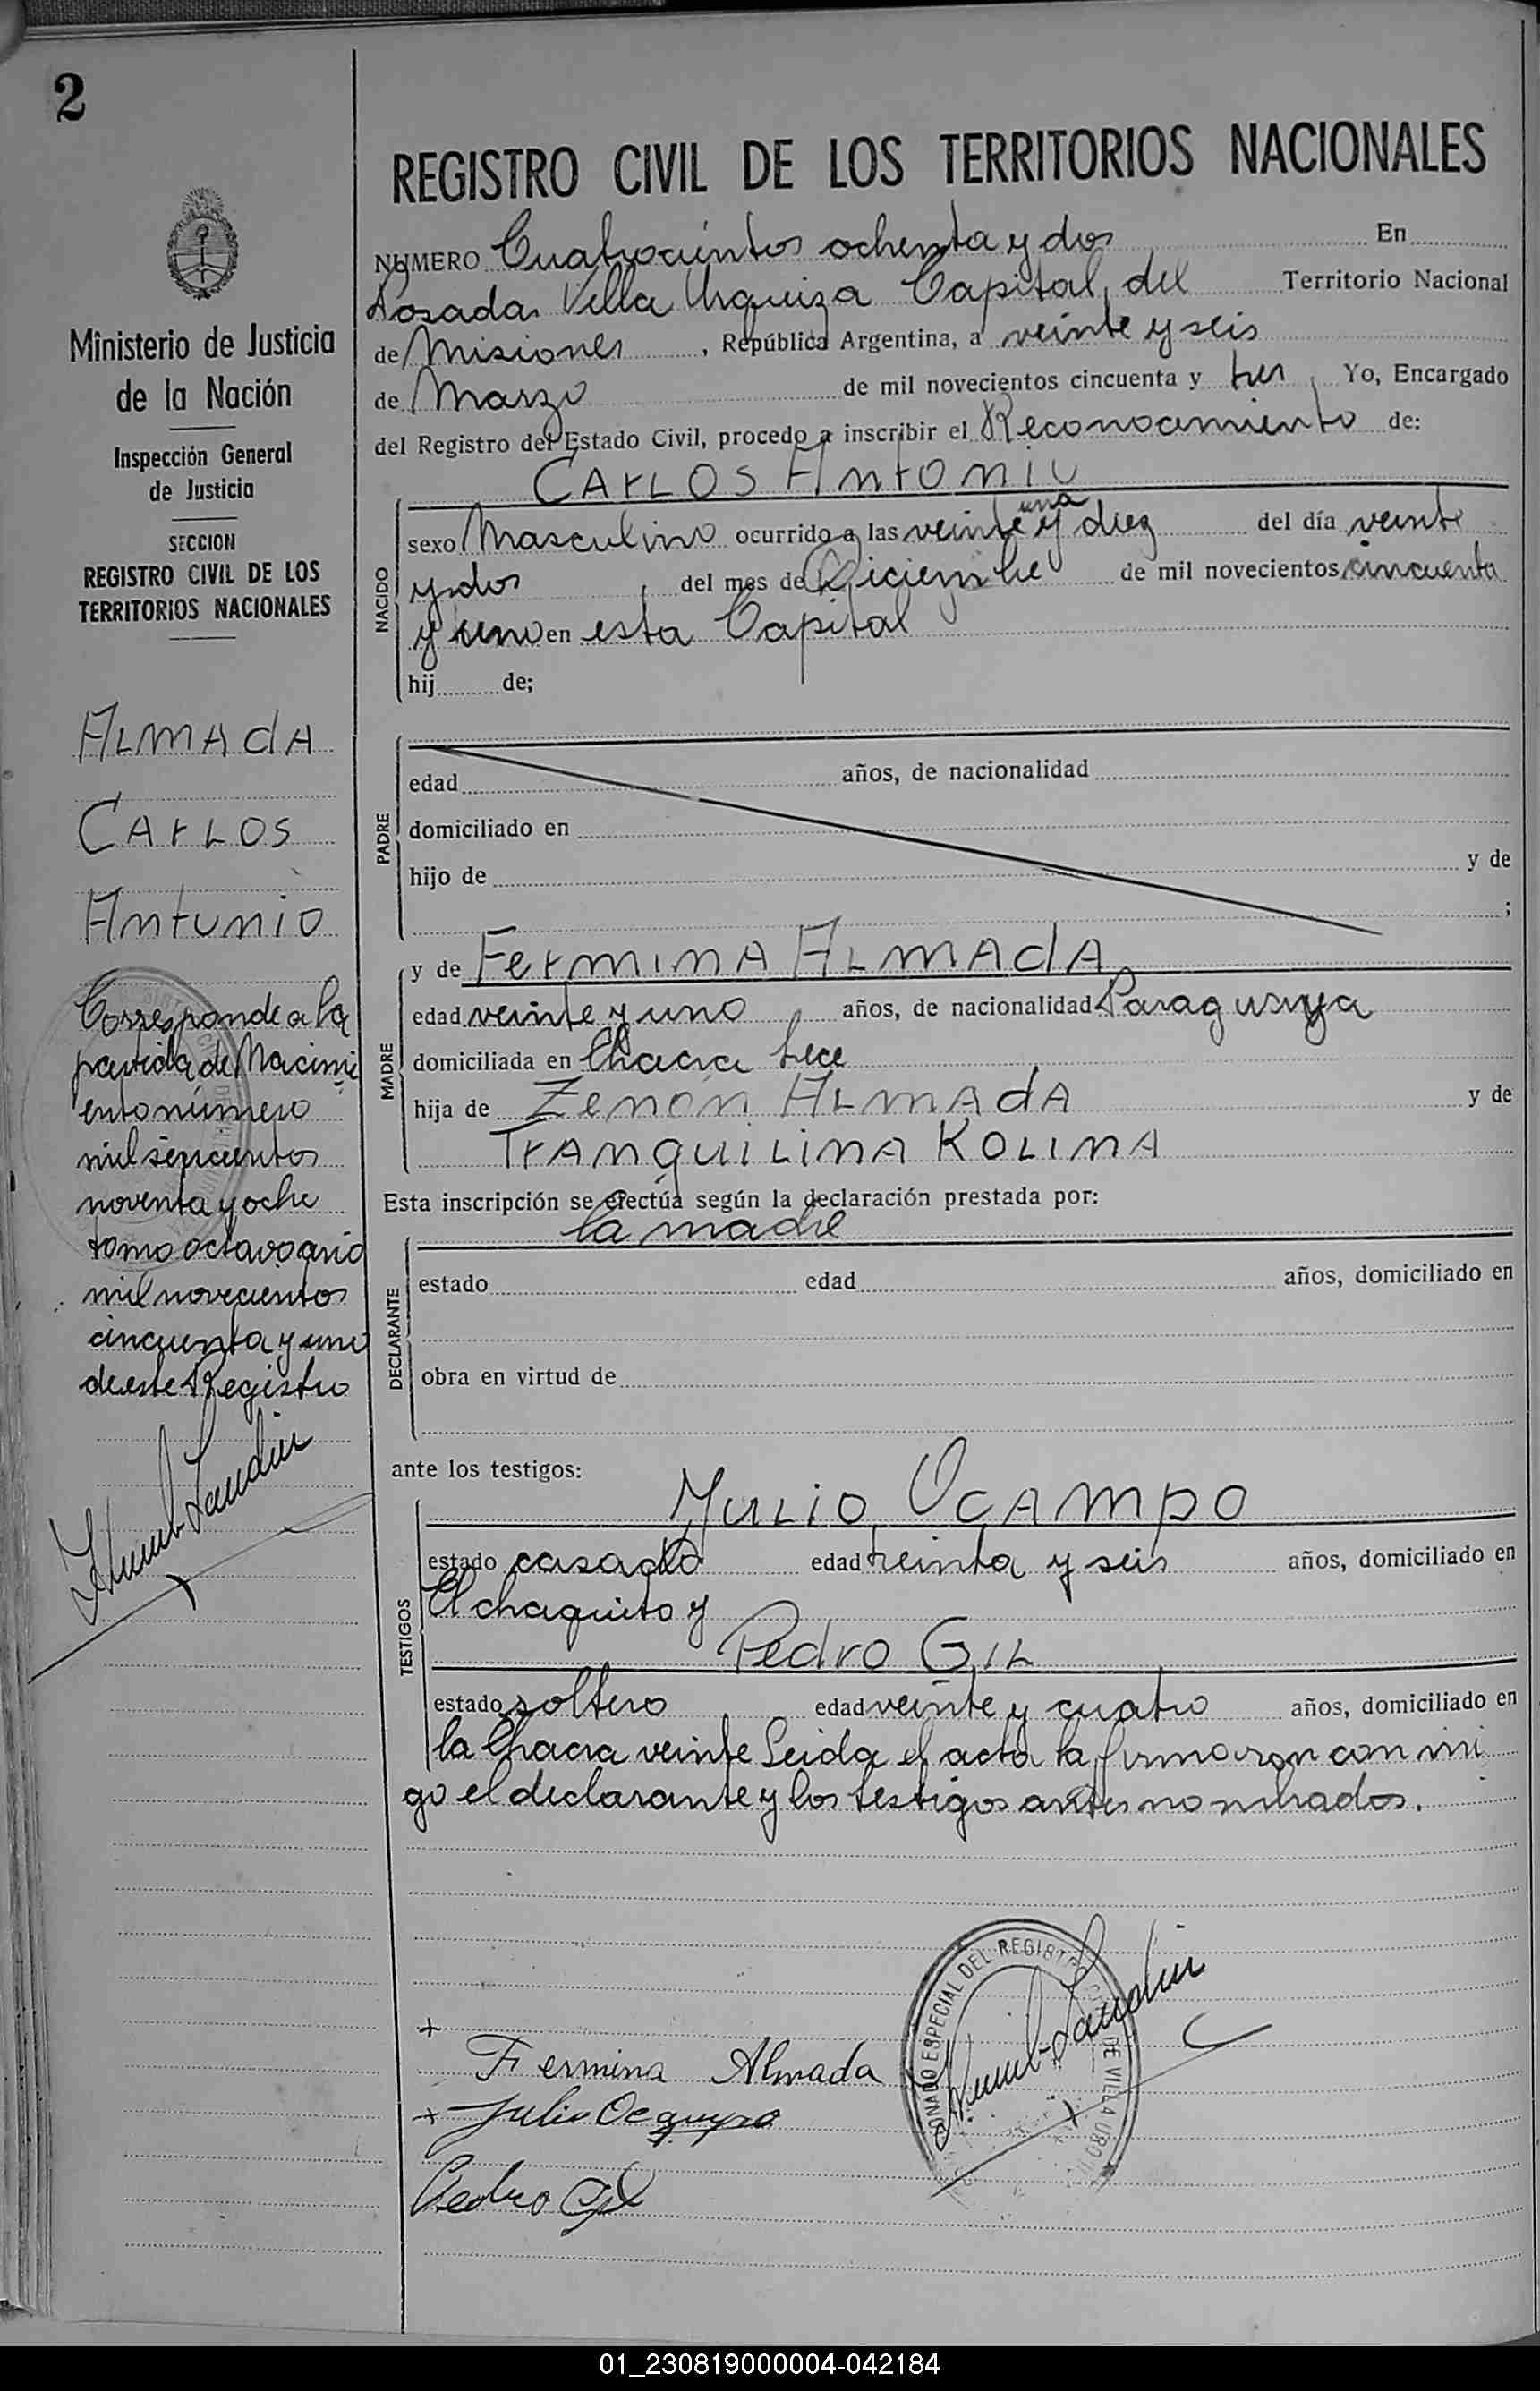 2
REGISTRO CIVIL DE LOS TERRITORIOS NACIONALES
NUMERO Cuatrocientos ochenta y dos En
Posadas Villa Urquiza Capital del Territorio Nacional
de Misiones, República Argentina, a veinte y seis
de Marzo de mil novecientos cincuenta y tres, Yo, Encargado
del Registro del Estado Civil, procedo a inscribir el Reconocimiento de:
CArLOS AntOniO
NACIDO
una
sexo Masculino ocurrido a las veinte y diez del día veinte
y dos, del mes de Diciembre de mil novecientos cincuenta
y uno en esta Capital
hij de;
PADRE
edad años, de nacionalidad
domiciliado en
hijo de y de
;
MADRE
y de FerminA ALmAdA
edad veinte y uno años, de nacionalidad Paraguaya
domiciliada en Chacra trece
hija de Zenón ALmAdA y de
TrAnquiLinA KOLinA
Esta inscripción se efectúa según la declaración prestada por:
la madre
DECLARANTE
estado edad años, domiciliado en
obra en virtud de
ante los testigos:
TESTIGOS
JuLiO OcAmpO
estado casado edad treinta y seis años, domiciliado en
El chaquito y
Pedro GiL
estado soltero edad veinte y cuatro años, domiciliado en
la Chacra veinte Leida el acta la firmaron con mi
go el declarante y los testigos antes nombrados.
Fermina Almada
Julio Ocampo
Pedro Gil
ESPECIAL DEL REGISTRO DE VILLA URQ
Ministerio de Justicia
de la Nación
Inspección General
de Justicia
SECCION
REGISTRO CIVIL DE LOS
TERRITORIOS NACIONALES
ALmAdA
CArLOS
AntOniO
Corresponde a la
partida de Nacimi
ento número
mil seiscientos
noventa y ocho
tomo octavo año
mil novecientos
cincuenta y uno
de este Registro
01_230819000004-042184